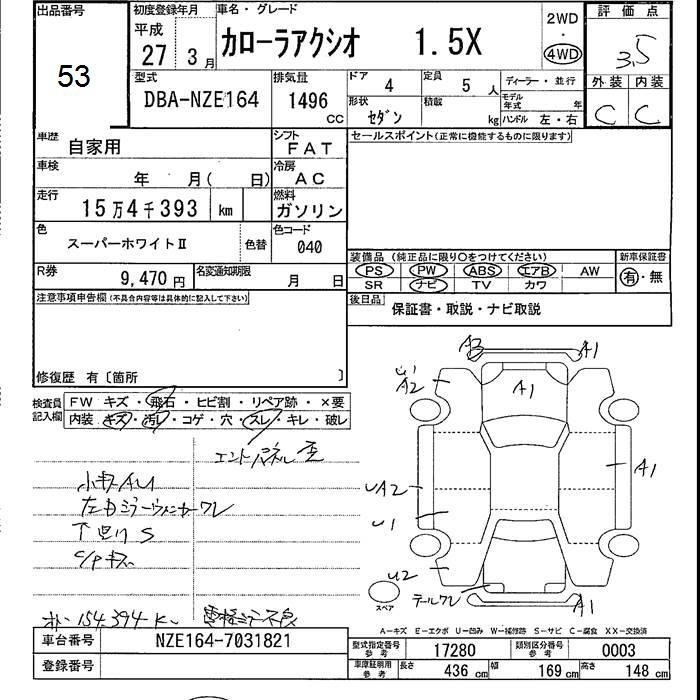 出品番号
53
初度登録年月
平成
27 3月
車名・グレード
カローラアクシオ 1.5X
2WD
・
4WD
評価点
3.5
外装 内装
C C
型式
DBA-NZE164
排気量
1496 CC
ドア 4
定員 5 人
ディーラー・並行
形状 セダン
積載 kg
モデル年式 年
ハンドル 左・右
車歴 自家用
シフト FAT
セールスポイント(正常に機能するものに限ります)
車検 年 月( 日)
冷房 AC
走行 15万4千393 km
燃料 ガソリン
色 スーパーホワイトⅡ 色替
色コード 040
装備品 (純正品に限り○をつけてください)
新車保証書
PS PW ABS エアB AW
SR ナビ TV カワ
有・無
R券 9,470円
名変通知期限 月 日
後日品 保証書・取説・ナビ取説
注意事項申告欄(不具合内容等は具体的に記入して下さい)
修復歴 有〔箇所 〕
検査員記入欄
FW キズ・飛石・ヒビ割・リペア跡・×要
内装 キズ・汚レ・コゲ・穴・スレ・キレ・破レ
エンドパネル歪
小キズAU
左ドアミラーウィンカーワレ
下廻りS
C/Pキズ
154,394K
A3 A1
U1
A2
A1
A1
UA2
U1
U2
テールワレ
A1
スペア
A-キズ E-エクボ U-凹み W-補修跡 S-サビ C-腐食 XX-交換済
車台番号 NZE164-7031821
登録番号
型式指定番号 参考 17280
類別区分番号 参考 0003
車庫証明用 参考 長さ 436 cm 幅 169 cm 高さ 148 cm